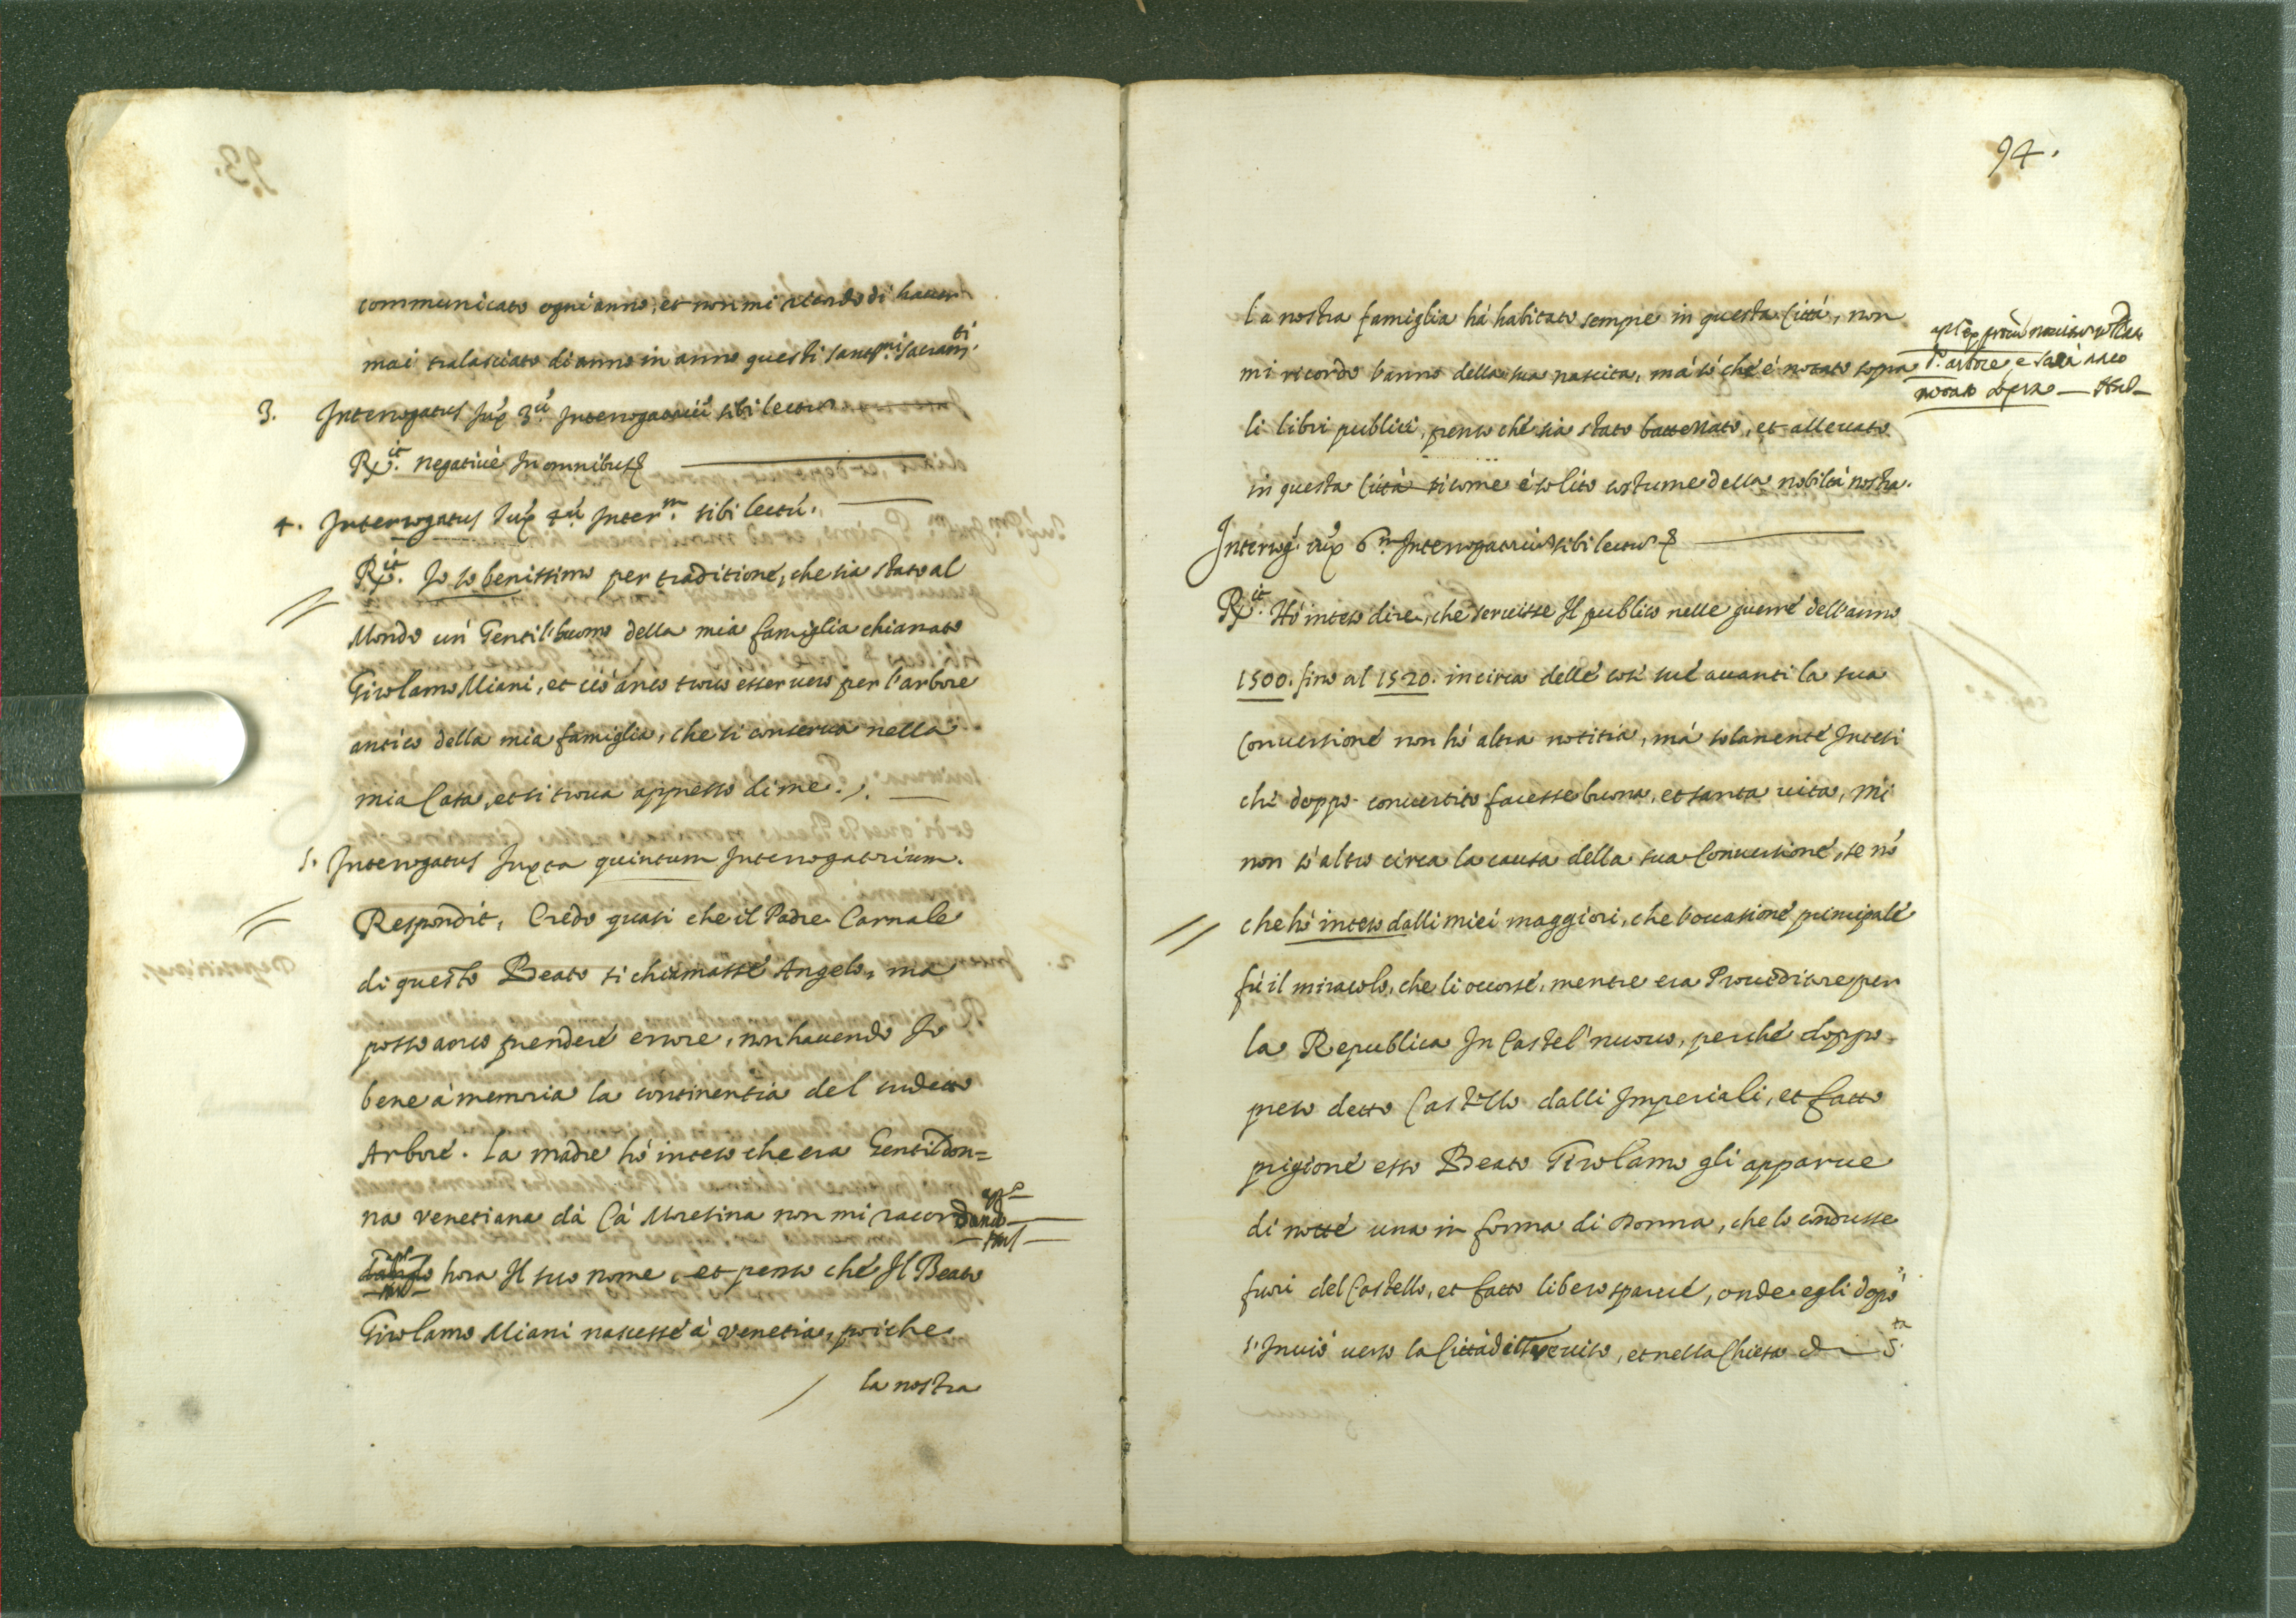 communicato ogni anno, et non mi ricordo di hauer
mai tralasciato di anno in anno questi sant.mi sacram.ti
3. Interrogatus Jux.a 3.um Interrogatorium sibi lectum
R.it negativè In omnibus
4. Interrogatus Jux.a 4.um Inter.m sibi lectu.
R.it. Io so benissimo per traditione, che sia stato al
Mondo un Gentil'huomo della mia famiglia chiamato
Girolamo Miani, et ciò anco trovo esser vero per l'arbore
antico della mia famiglia, che si conserva nella
mia Casa, et si trova appresso di me.
5. Interrogatus Juxta quintum Interrogatorium.
Respondit, Credo quasi che il Padre Carnale
di questo Beato si chiamasse Angelo, ma
posso anco prendere errore, non havendo Io
bene à memoria la continentia del sudetto
Arbore. La madre hò inteso che era Gentildon=
na Venetiana dà Cà Moresina non mi racordando
hora Il suo nome, et penso ché Il Beato
Girolamo Miani nascesse à Venetia, poiche
la nostra
94.
la nostra famiglia hà habitato sempre in questa Città, non
mi ricordo l'anno della sua nascita, mà sò ché è notato sopra
d.o arbore, e sarà anco
notato sopra
li libri publici, penso ché sia stato battezzato, et allevato
in questa Città si come é solito costume della nobiltà nostra.
Interrog. iux.a 6.m Interrogatorium sibi lectum
R.it. Hó inteso dire, che servisse Il publico nelle guerre dell'anno
1500. fino al 1520. in circa delle cose sue avanti la sua
Conversioné non hò altra notitia, mà solamente Intesi
ché doppo convertito facesse buona, et santa vita, mi
non sò altro circa la causa della sua Conversioné, se nò
che hò inteso dalli miei maggiori, che l'occasioné principale
fù il miracolo, che li occorsé, mentre era Proveditore per
la Republica In Castel'nuovo, perché doppo
preso detto Castello dalli Imperiali, et fatto
prigioné esso Beato Girolamo gli apparve
di notté una in forma di Donna, che lo condusse
fuori del Castello, et fatto libero sparvé, onde egli dopò
s'Inviò verso la Città di Treviso, et nella Chiesa di S.ta